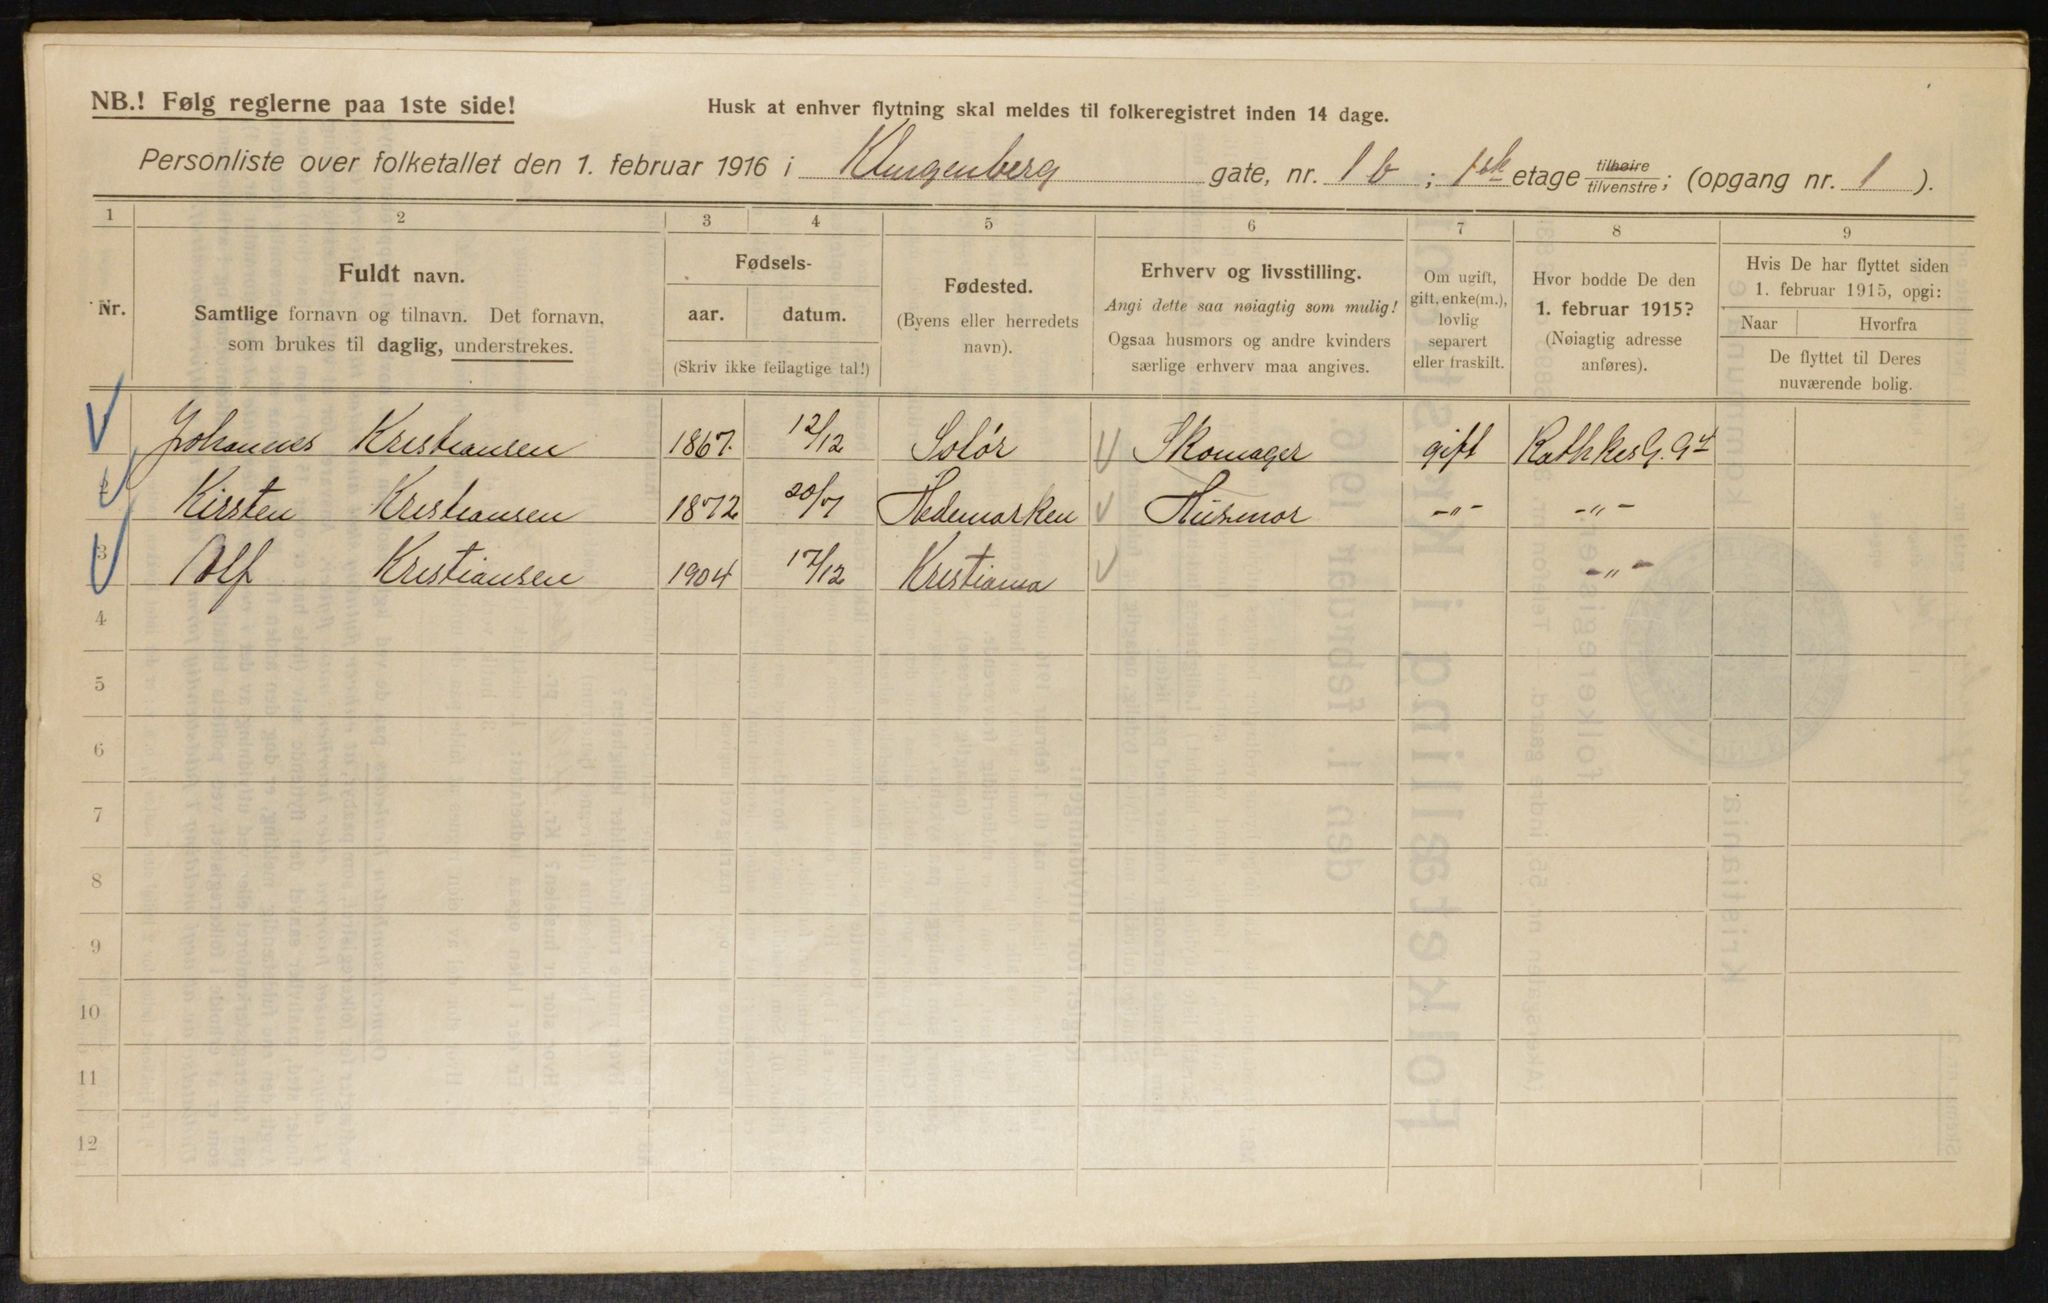 NB.! Følg reglerne paa 1ste side!
Husk at enhver flytning skal meldes til folkeregistret inden 14 dage.
Personliste over folketallet den 1. februar 1916 i Klingenberg gate, nr. 1 b ; 1ste etage tilhøire tilvenstre; (opgang nr. 1 ).
1 2 3 4 5 6 7 8 9
Nr.
Fuldt navn.
Samtlige fornavn og tilnavn. Det fornavn,
som brukes til daglig, understrekes.
Fødsels-
aar. datum.
(Skriv ikke feilagtige tal!)
Fødested.
(Byens eller herredets
navn).
Erhverv og livsstilling.
Angi dette saa nøiagtig som mulig!
Ogsaa husmors og andre kvinders
særlige erhverv maa angives.
Om ugift,
gift, enke(m.),
lovlig
separert
eller fraskilt.
Hvor bodde De den
1. februar 1915?
(Nøiagtig adresse
anføres).
Hvis De har flyttet siden
1. februar 1915, opgi:
Naar Hvorfra
De flyttet til Deres
nuværende bolig.
Johannes Kristiansen 1867. 12/12 Solør Skomager gift RathkesG. 94
2 Kirsten Kristiansen 1872 20/7 Hedemarken Husmor -"- -"-
3 Alf Kristiansen 1904 17/12 Kristiania -"-
4
5
6
7
8
9
10
11
12